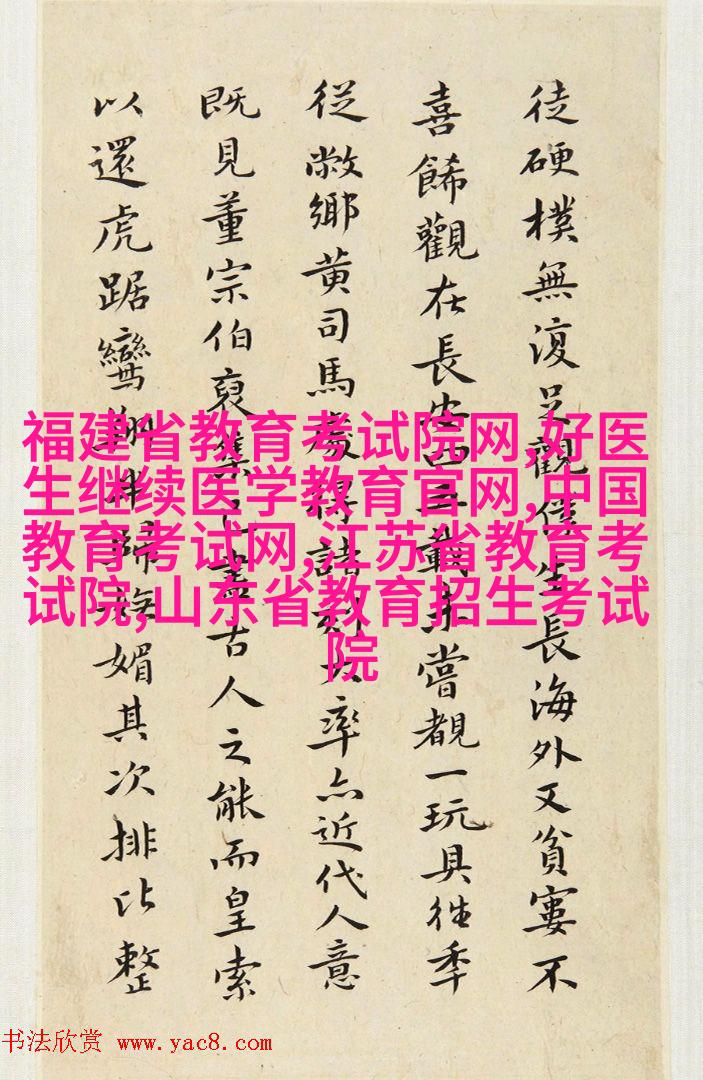 徒硬樸無復足觀僕生長海外又貧窶不
喜餙觀在長安四載未嘗覩一玩具往季
從敝鄉黄司馬處得諸刻大率亦近代人意
既見董宗伯裒集盡古人之能而皇索
以還虎踞鸞翔媚其次排比整
福建省教育考试院网,好医
生继续医学教育官网,中国
教育考试网,江苏省教育考
试院,山东省教育招生考试
院
书法欣赏 www.yac8.com